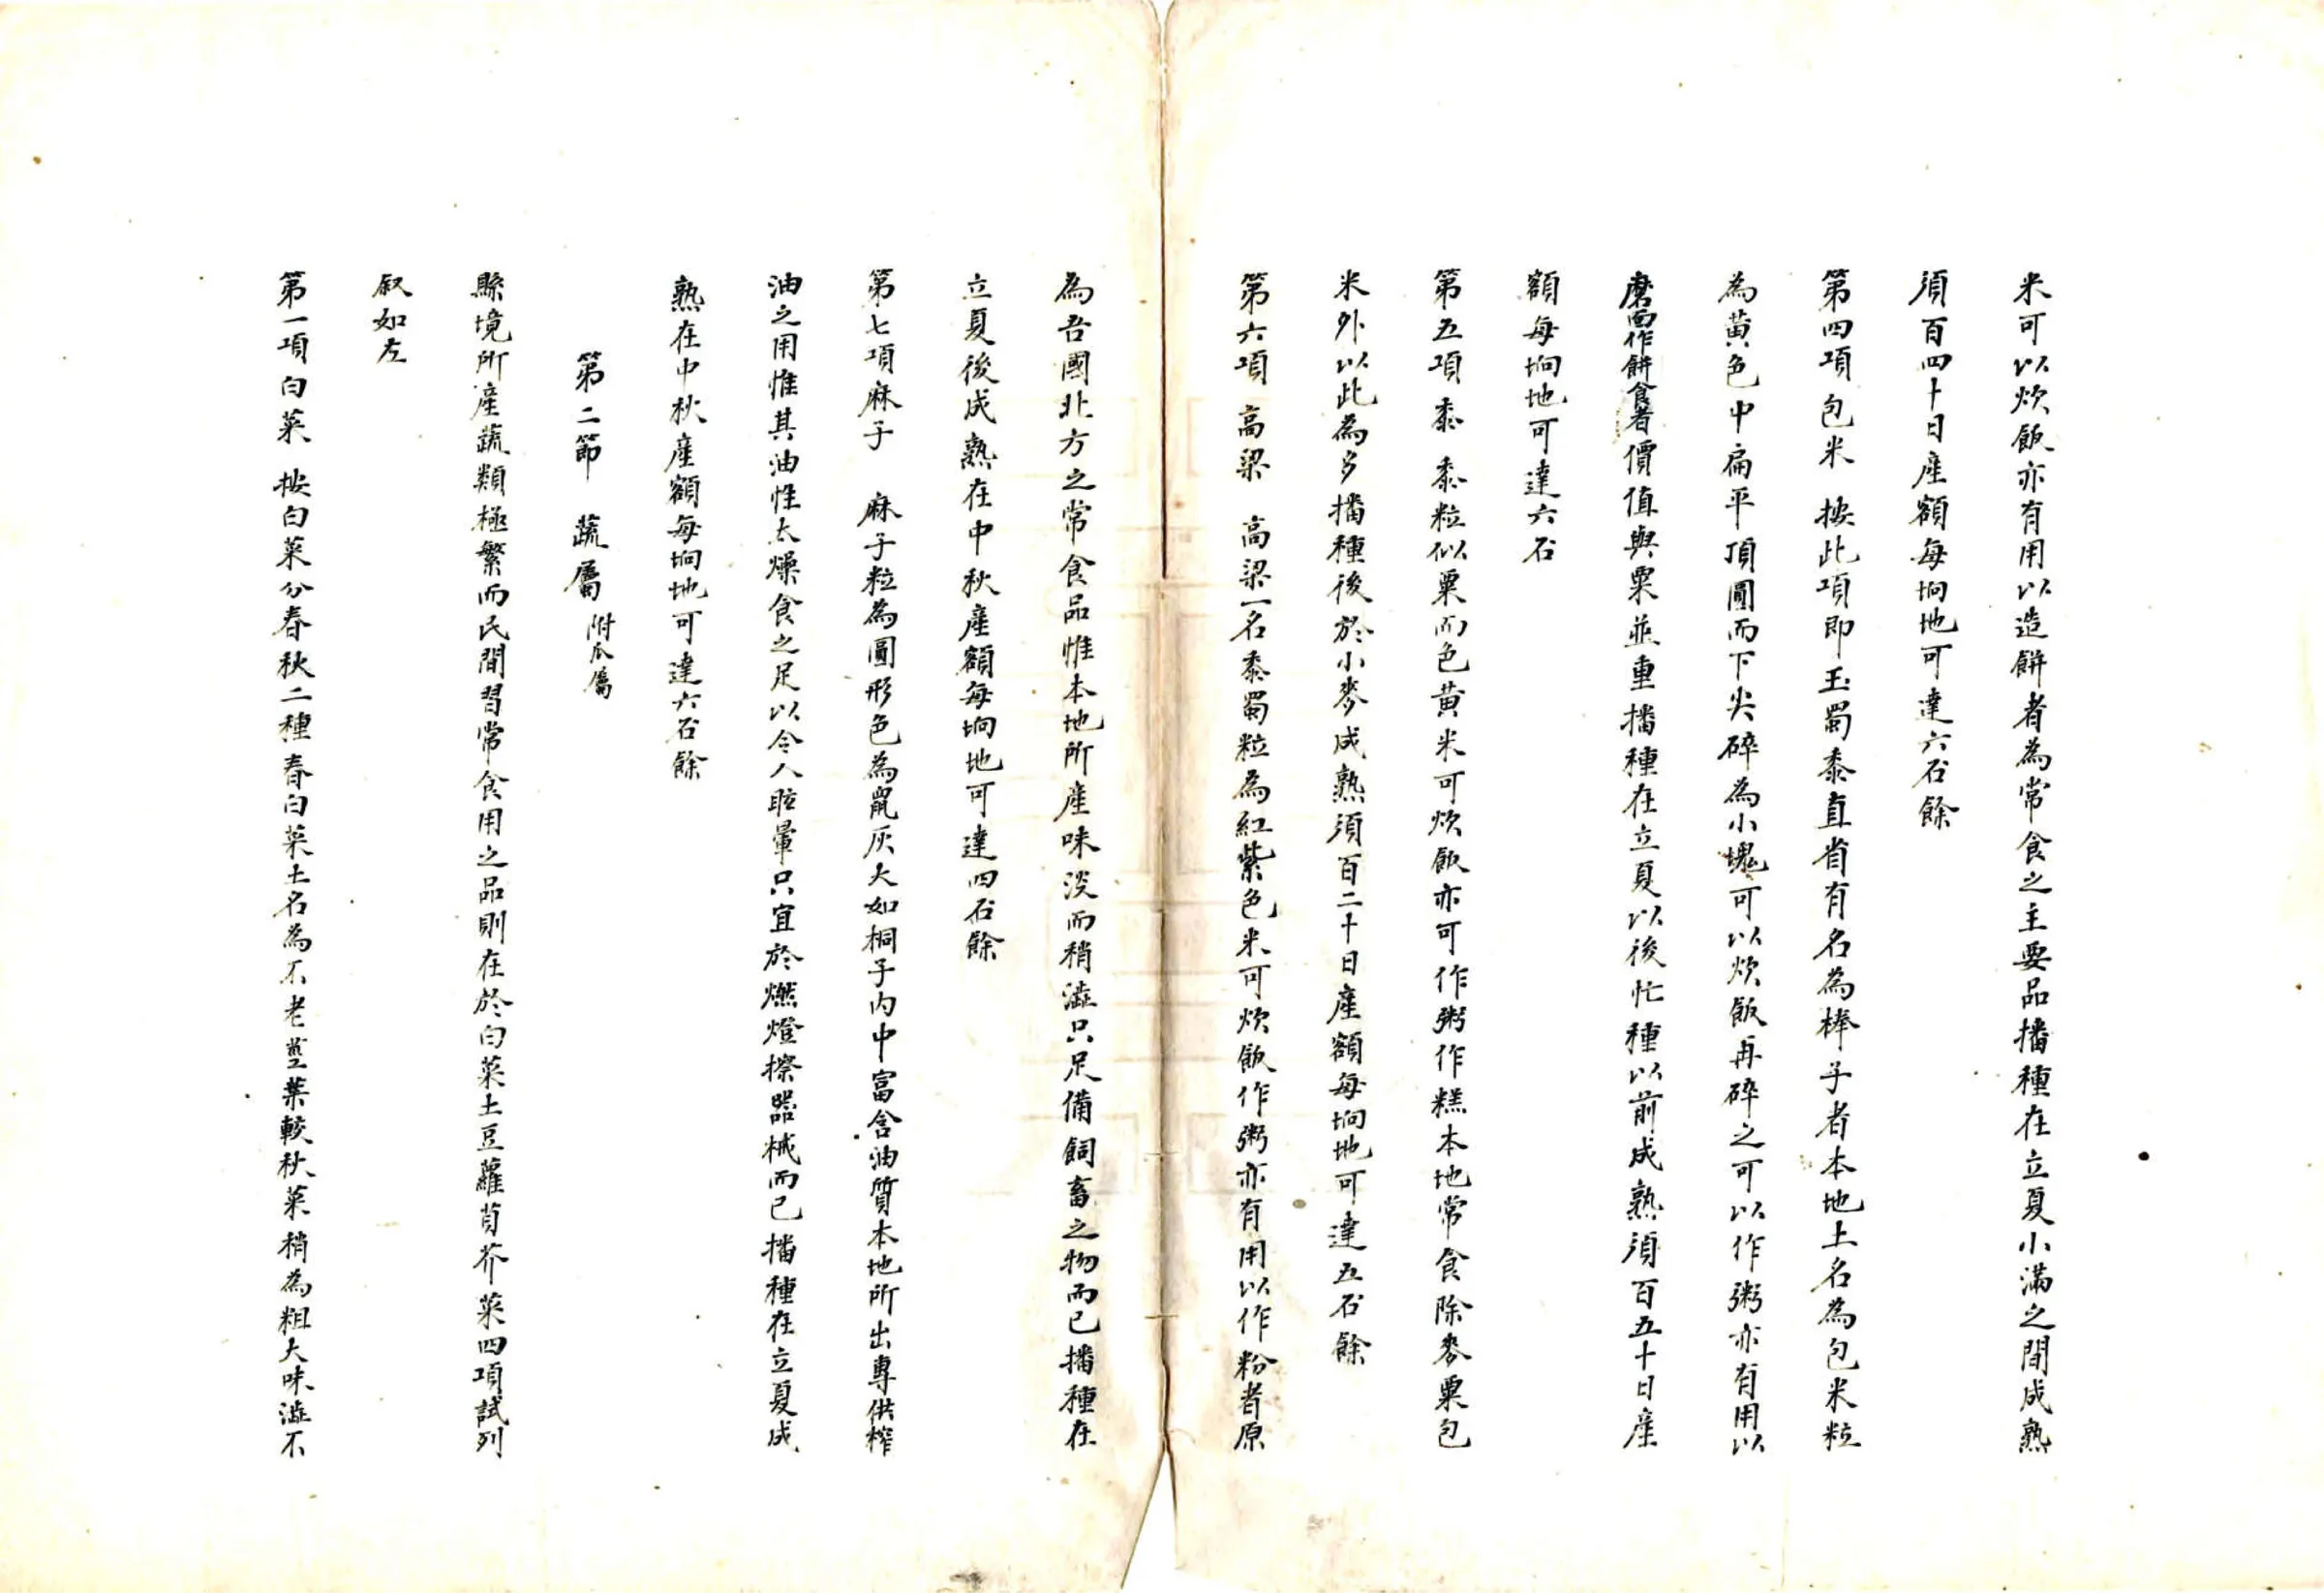 米可以炊飯亦有用以造餅者為常食之主要品播種在立夏小滿之間成熟
須百四十日產額每垧地可達六石餘
第四項包米 按此項即玉蜀黍直省有名為棒子者本地土名為包米粒
為黃色中扁平頂圓而下尖碎為小塊可以炊飯再碎之可以作粥亦有用以
磨面作餅食者價值與粟並重播種在立夏以後忙種以前成熟須百五十日產
額每垧地可達六石
第五項黍 黍粒似粟而色黃米可炊飯亦可作粥作糕本地常食除麥粟包
米外以此為多播種後於小麥成熟須百二十日產額每垧地可達五石餘
第六項 高粱 高粱一名黍蜀粒為紅紫色米可炊飯作粥亦有用以作粉者原
為吾國北方之常食品惟本地所產味淡而稍澁只足備飼畜之物而已播種在
立夏後成熟在中秋產額每垧地可達四石餘
第七項麻子 麻子粒為圓形色為鼠灰大如桐子內中富含油質本地所出專供榨
油之用惟其油性太燥食之足以令人眩暈只宜於燃燈擦器械而已播種在立夏成
熟在中秋產額每垧地可達六石餘
第二節 蔬屬 附瓜屬
縣境所產蔬類極繁而民間習常食用之品則在於白菜土豆蘿蔔芥菜四項試列
叙如左
第一項白菜 按白菜分春秋二種春白菜土名為不老莖葉較秋菜稍為粗大味澁不